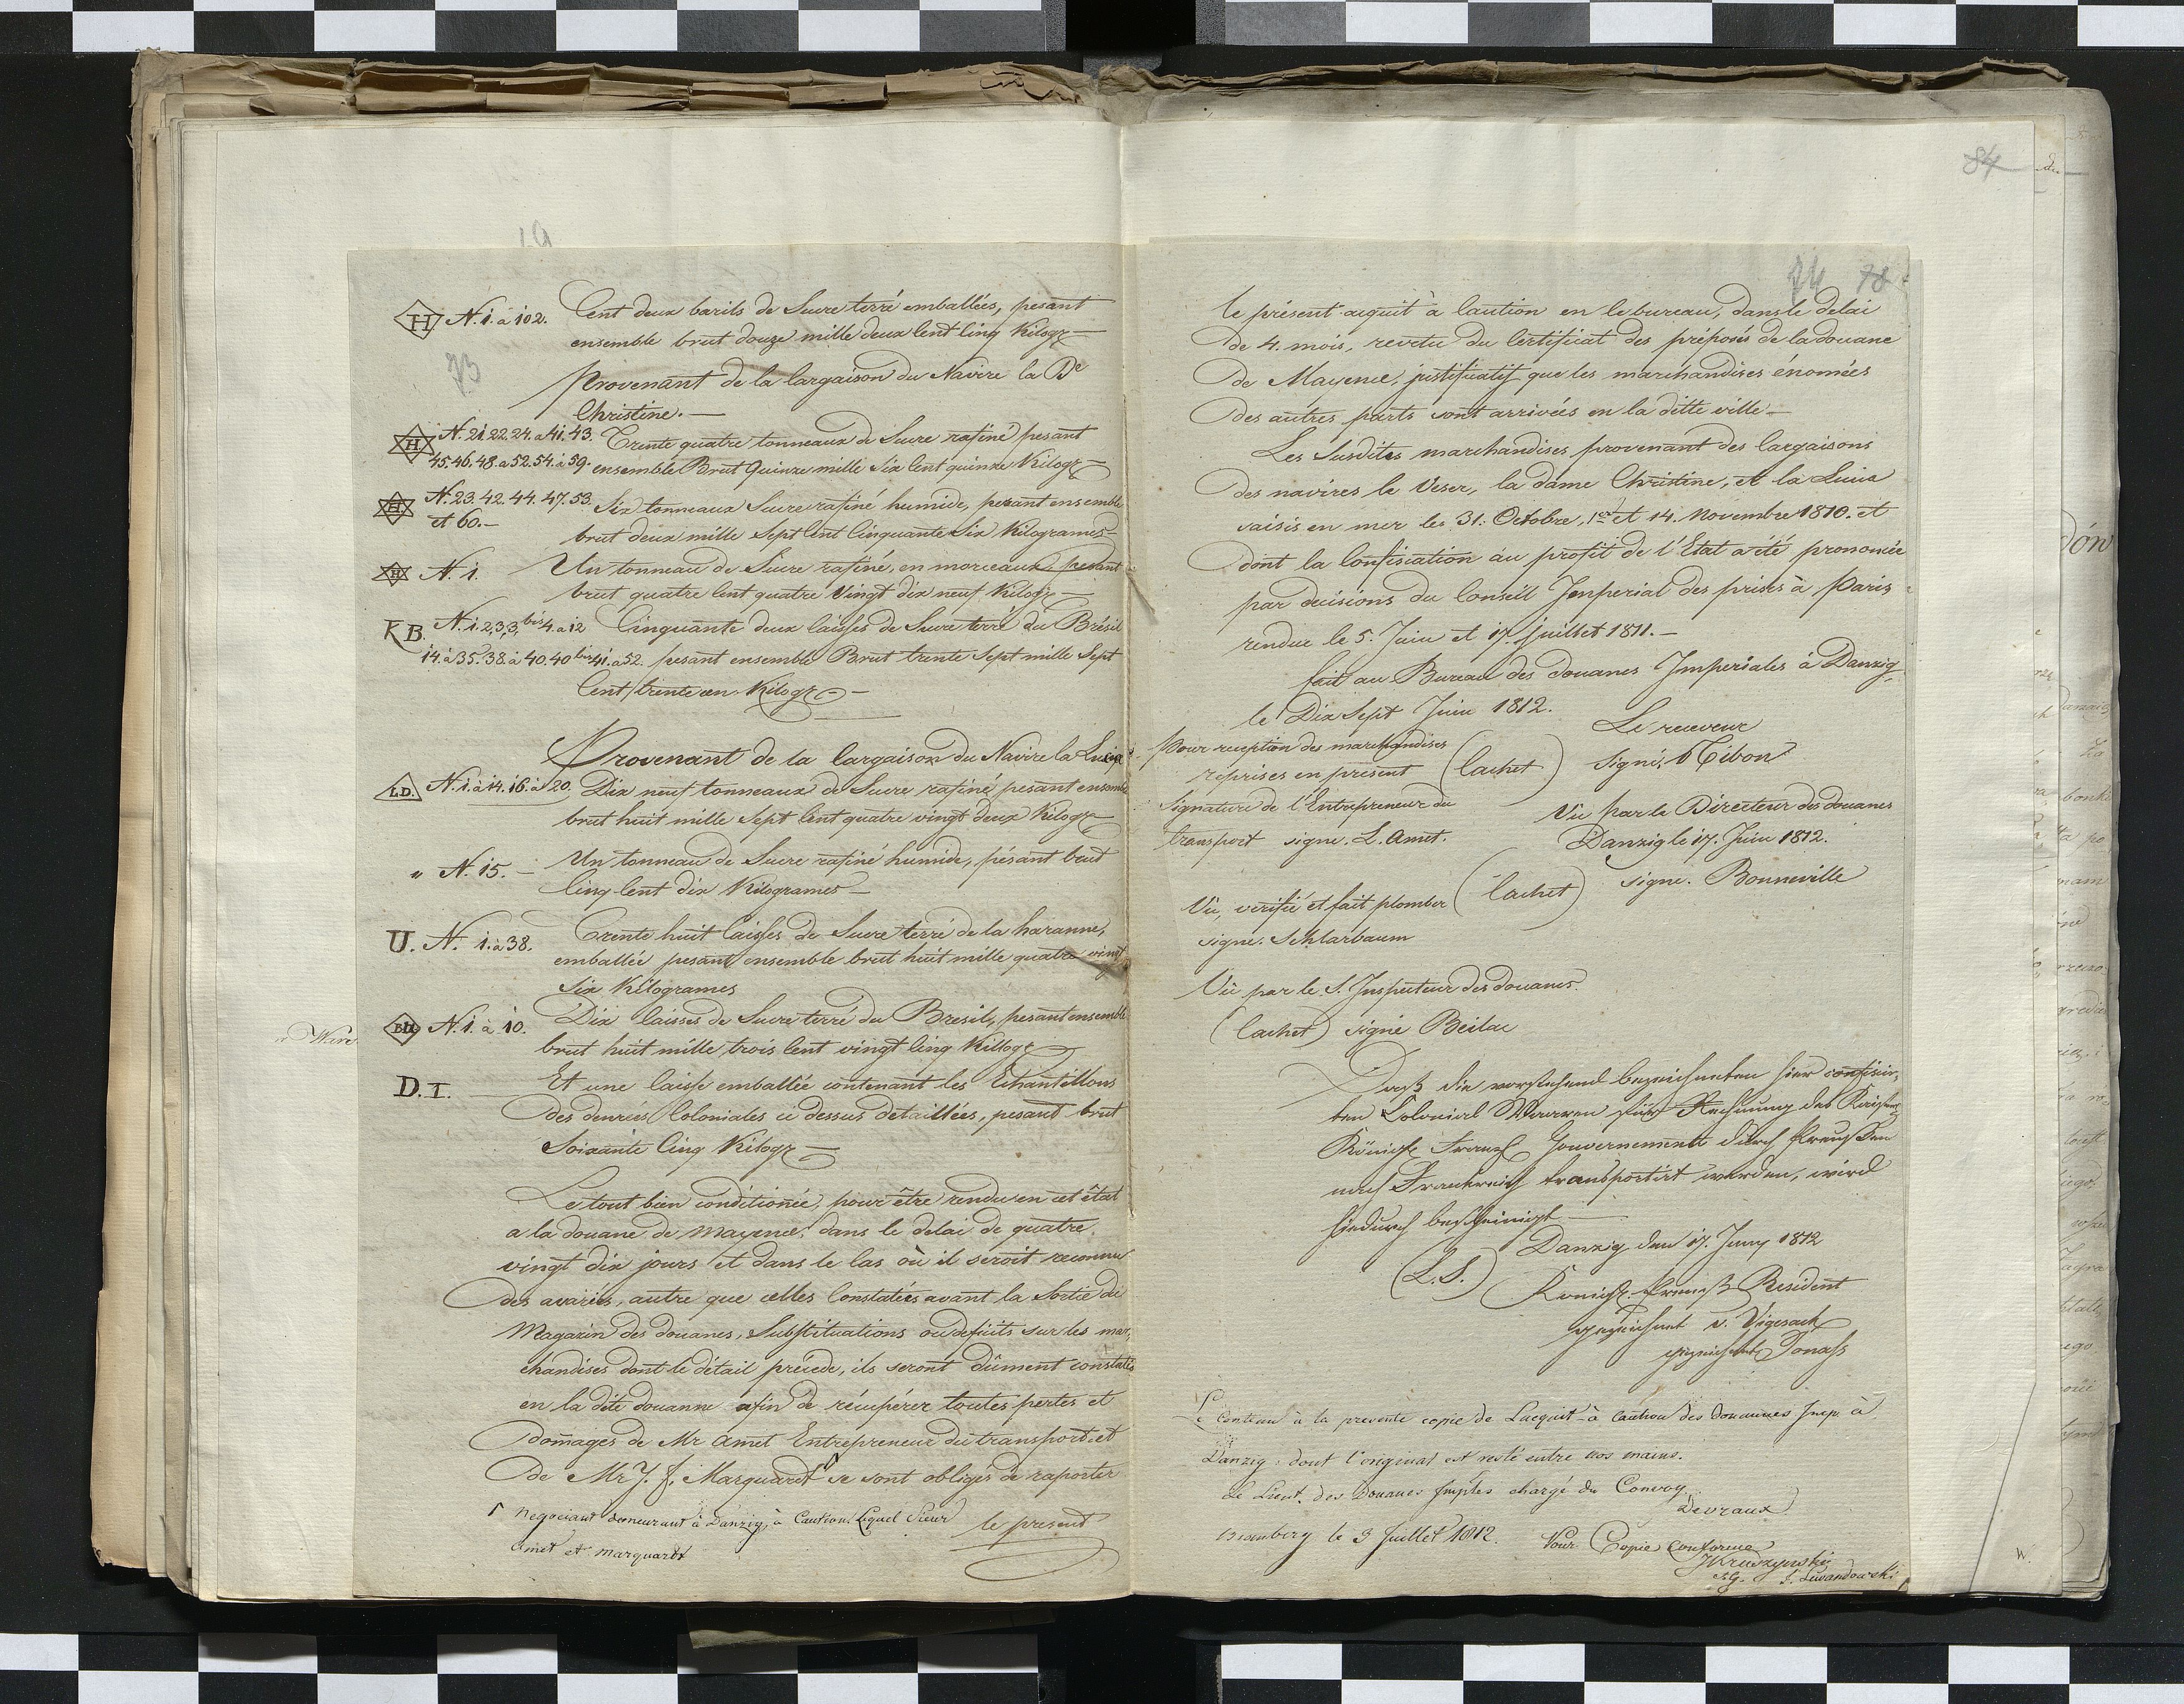 H N. 1. à 102. Cent deux barils de Sucre terré emballées, pesant
ensemble brut douze mille deux Cent Cinq Kilogr
73
Provenant de la Cargaison du Navire la De
Christine. —
H N. 21. 22. 24. a 41. 43. Trente quatre tonneaux de Sucre rafiné pesant
45. 46. 48. a 52. 54. à 59. ensemble Brut Quinze mille Six Cent quinze Kilogr
H N. 23. 42. 44. 47. 53. Six tonneaux Sucre rafiné humide, pesant ensemble
et 60. — brut deux mille Sept Cent Cinquante Six Kilogrames
H N. 1. Un tonneau de Sucre rafiné, en morceaux pesant
brut quatre Cent quatre Vingt dix neuf Kilogr —
KB. N. 1. 2, 3, 3, bis 4. a 12 Cinquante deux Caisses de Sucre terré du Brésil
14. à 35. 38. à 40. 40 bis 41. a 52. pesant ensemble Brut trente Sept mille Sept
Cent trente un Kilogr —
Provenant de la Cargaison du Navire la Lucia
L.D. N. 1. à 14. 16. à 20. Dix neuf tonneaux de Sucre rafiné pesant ensemble
brut huit mille Sept Cent quatre vingt deux Kilogr
" N. 15. — Un tonneau de Sucre rafiné humide, pésant brut
Cinq Cent dix Kilogrames —
U. N. 1. à 38. Trente huit Caisses de Sucre terré de la havanne,
emballée pesant ensemble brut huit mille quatre vingt
Six Kilogrames
BH N. 1. à 10. Dix Caisses de Sucre terré du Bresil, pesant ensemble
brut huit mille trois Cent vingt Cinq Killogr
D. I. Et une Caisse emballée contenant les Echantillons
des denrées Coloniales ci dessus detaillées, pesant brut
Soixante Cinq Kilogr —
Le tout bien conditionée, pour être rendu en cet état
a la douane de Mayence, dans le delai de quatre
vingt dix jours et dans le Cas où il seroit reconnu
des avariés, autre que celles Constatées avant la Sortie du
Magazin des douanes, Substituations ou deficits sur les mar,
chandises dont le détail précede, ils seront dûment constatés
en la dite douanne afin de récupérer toutes pertes et
domages de Mr Amet Entrepreneur du transport et
de Mr J. J. Marquardt se sont obligés de raporter
negociant demeurant à Danzig, à Caution Lequel Sieur le present
Amet et Marquardt
84
74 78
le présent acquit à Caution en le bureau, dans le delai
de 4. mois, revetu du Certificat des préposés de la douane
de Mayence, justificatif que les marchandises énomées
des autres parts sont arrivées en la ditte ville —
Les Susdites marchandises provenant des Cargaisons
des navires le Veser, la dame Christine, et la Lucia
saisis en mer les 31. Octobre, 1er et 14. Novembre 1810. et
dont la Confiscation au profit de l'Etat a été prononcée
par decisions du Conseil Imperial des prises à Paris
rendue le 5. Juin et 17. juillet 1811. —
fait au Bureau des douanes Imperiales à Danzig,
le Dix Sept Juin 1812. Le receveur
Pour reception des marchandises
reprises en présent (Cachet) Signé, Tibon
Signature de l'Entrepreneur du
transport signé. L. Amet.
Vu par le Directeur des douanes
Danzig le 17. Juin 1812.
(Cachet) signé. Bonneville
Vu, verifié et fait plomber
signé. Schlarbaum
Vu par le S. Inspecteur des douanes.
(Cachet) signé Beilac
Daß die vorstehend bezeichneten hier confisir,
ten Colonial Waaren für Rechnung des Kaiserl
Königl Franzl Gouvernements durch Preußen
nach Frankreich transportirt werden, wird
hiedurch bescheinigt —
Danzig den 17. Juny 1812
(L. S.) Königl. Preuß Resident
gezeichnet v. Vegesack
gezeichnet Jonass
Le Contenu à la presente copie de Lacquit à Caution des Douannes Imp. à
Danzig: dont l'original est resté entre nos mains.
Le Lieut. des Douanes Imples chargé du Convoy.
Devraux
Bromberg le 3 Juillet 1812. Pour Copie Conforme
S. G. J. Lewandowski